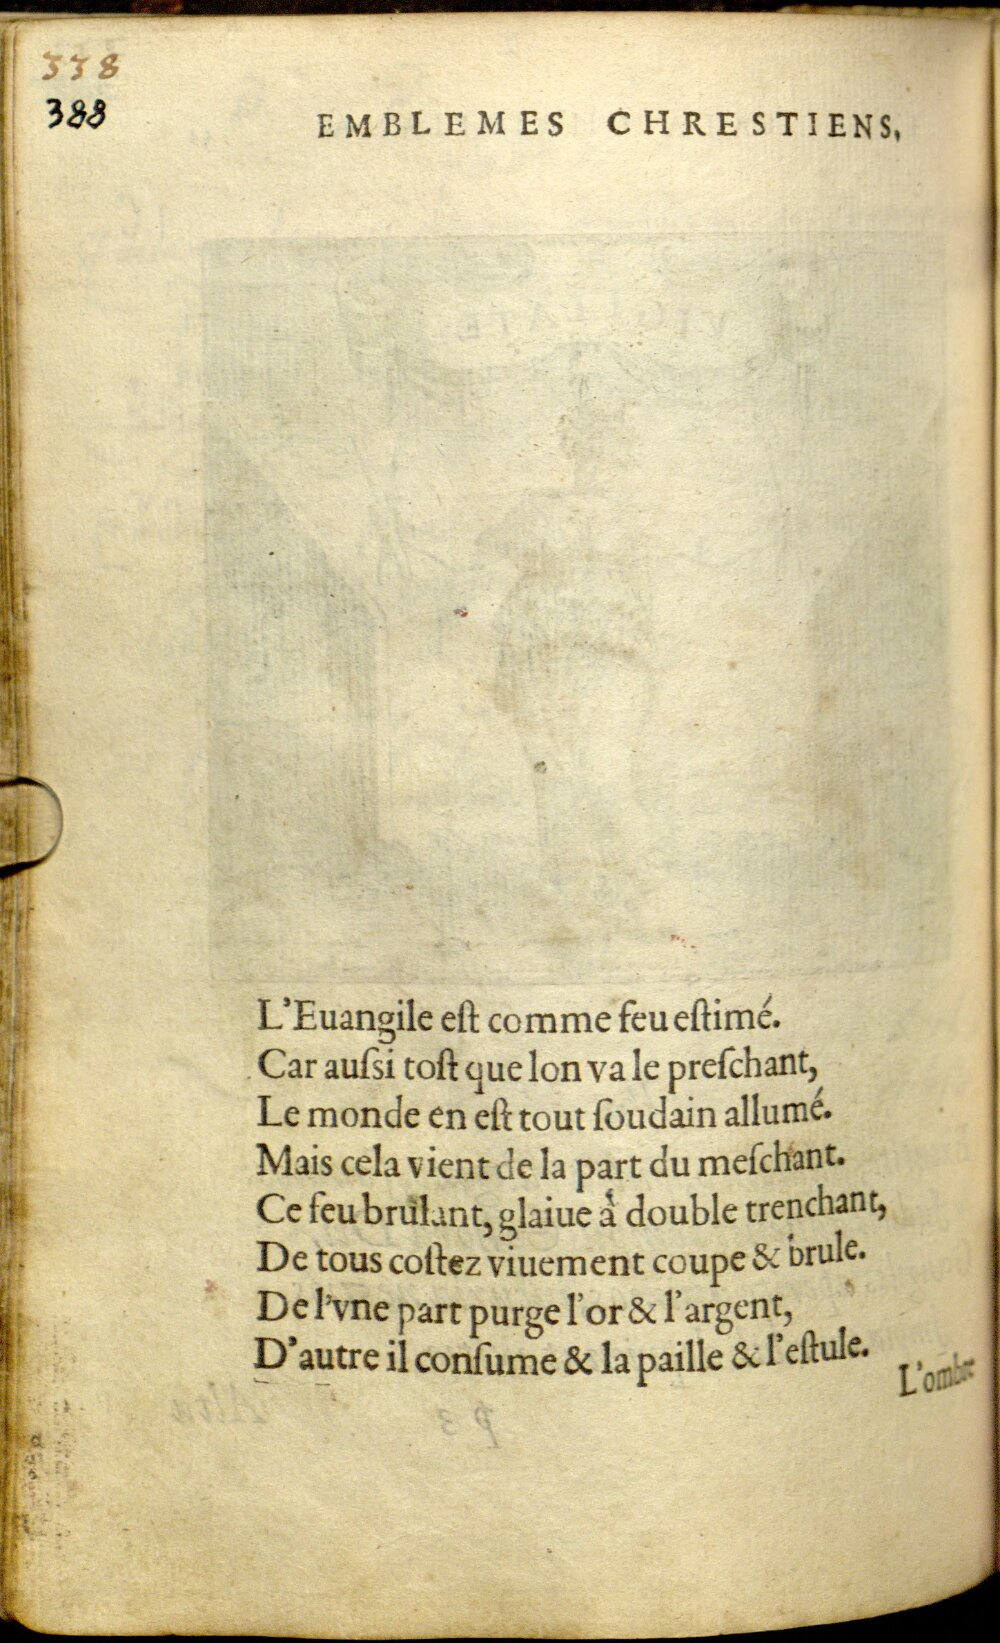 338
388
EMBLEMES CHRESTIENS,
L'Euangile eſt comme feu eſtimé.
Car auſsi toſt que lon va le preſchant,
Le monde en eſt tout ſoudain allumé.
Mais cela vient de la part du meſchant.
Ce feu brulant, glaiue à double trenchant,
De tous coſtez viuement coupe & brule.
De l'vne part purge l'or & l'argent,
D'autre il conſume & la paille & l'eſtule.
L'ombre